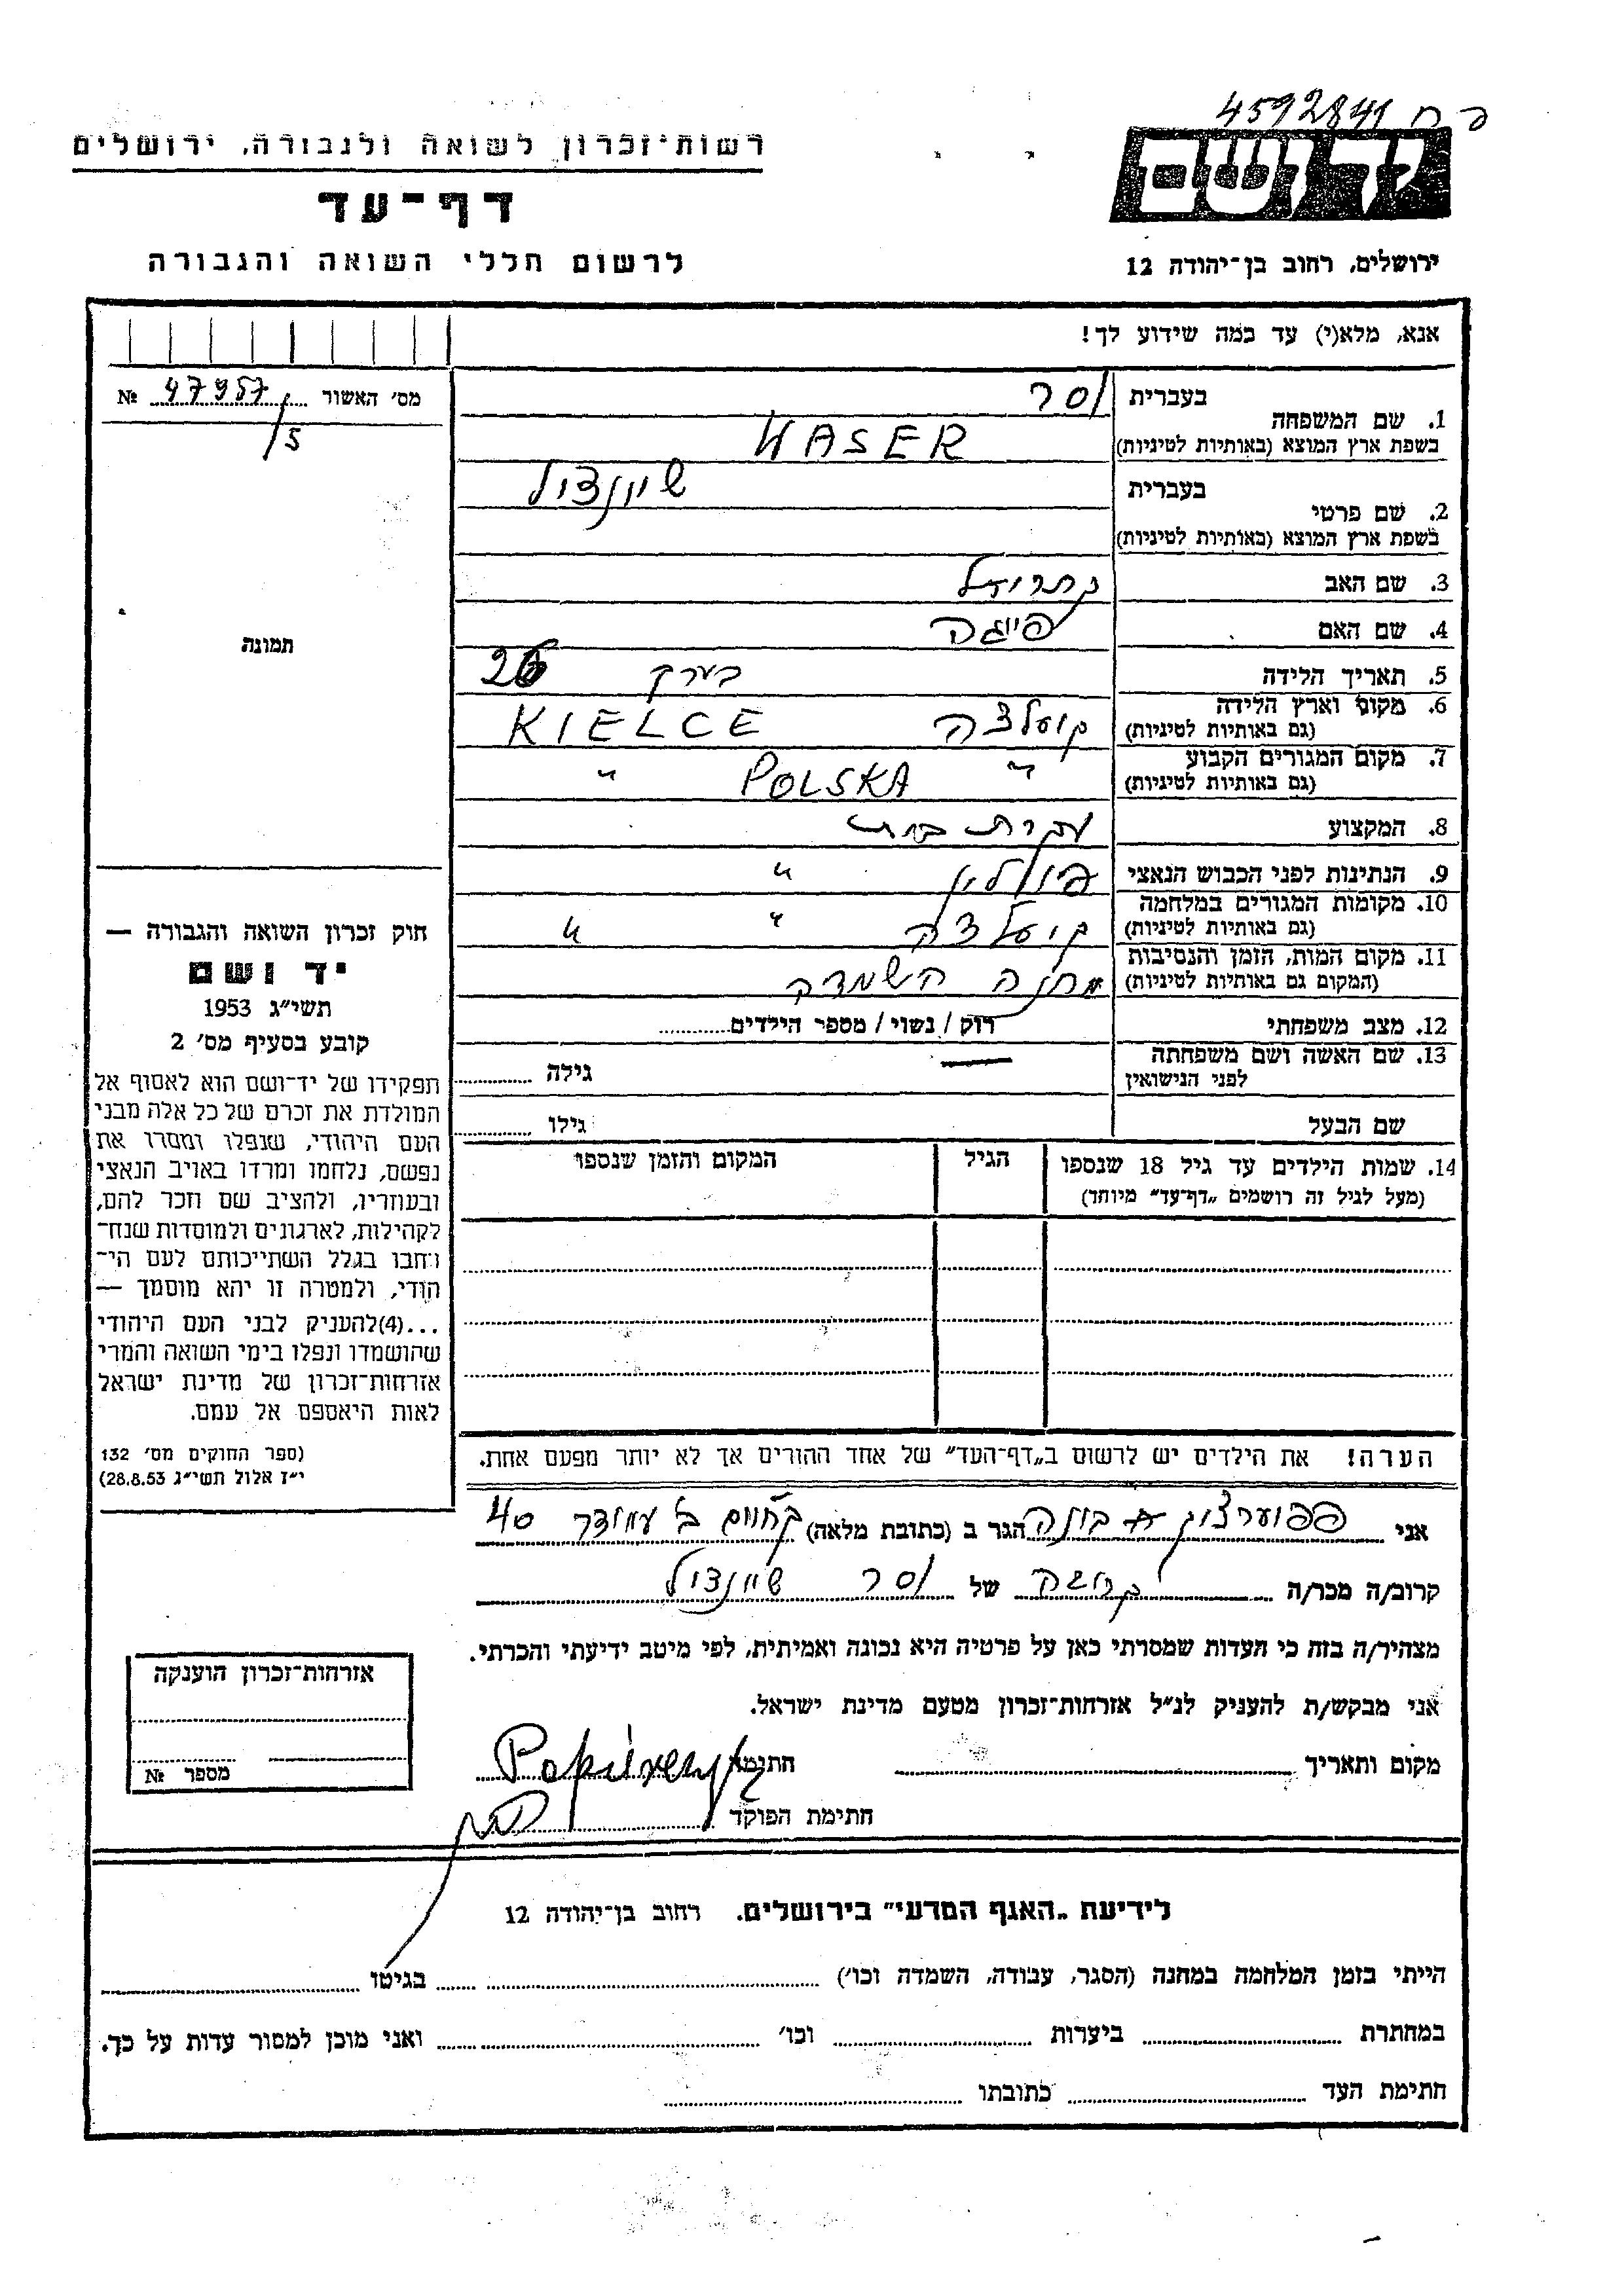 4592841
רשות־זכרון לשואה ולגבורה, ירושלים
ידושם
דף־עד
לרשום חללי השואה והגבורה
ירושלים, רחוב בן־יהודה 12
אנא, מלא(י) עד כמה שידוע לך!
מס׳ האשור 47957 №
/5
1. שם המשפחה בעברית וסר
בשפת ארץ המוצא (באותיות לטיניות) WASER
2. שם פרטי בעברית שיינדל
בשפת ארץ המוצא (באותיות לטיניות)
3. שם האב
4. שם האם פייגה
תמונה
5. תאריך הלידה בערך
6. מקום וארץ הלידה
(גם באותיות לטיניות) KIELCE
7. מקום המגורים הקבוע
(גם באותיות לטיניות) " POLSKA "
8. המקצוע עקרת בית
9. הנתינות לפני הכבוש הנאצי פולין "
10. מקומות המגורים במלחמה
(גם באותיות לטיניות) " "
11. מקום המות, הזמן והנסיבות
(המקום גם באותיות לטיניות) מחנה השמדה
12. מצב משפחתי רוק / נשוי / מספר הילדים
13. שם האשה ושם משפחתה
לפני הנישואין — גילה
שם הבעל גילו
14. שמות הילדים עד גיל 18 שנספו הגיל המקום והזמן שנספו
(מעל לגיל זה רושמים „דף־עד" מיוחד)
חוק זכרון השואה והגבורה —
יד ושם
תשי״ג 1953
קובע בסעיף מס׳ 2
תפקידו של יד־ושם הוא לאסוף אל
המולדת את זכרם של כל אלה מבני
העם היהודי, שנפלו ומסרו את
נפשם, נלחמו ומרדו באויב הנאצי
ובעוזריו, ולהציב שם וזכר להם,
לקהילות, לארגונים ולמוסדות שנח־
רבו בגלל השתייכותם לעם הי־
הודי, ולמטרה זו יהא מוסמך —
...(4)להעניק לבני העם היהודי
שהושמדו ונפלו בימי השואה והמרי
אזרחות־זכרון של מדינת ישראל
לאות היאספם אל עמם.
(ספר החוקים מס׳ 132
י״ז אלול תשי״ג 28.8.53)
הערה! את הילדים יש לרשום ב„דף־העד" של אחד ההורים אך לא יותר מפעם אחת.
אני הגר ב (כתובת מלאה) 40
קרוב/ה מכר/ה של וסר שיינדל
מצהיר/ה בזה כי העדות שמסרתי כאן על פרטיה היא נכונה ואמיתית, לפי מיטב ידיעתי והכרתי.
אני מבקש/ת להעניק לנ״ל אזרחות־זכרון מטעם מדינת ישראל.
מקום ותאריך חתימה
חתימת הפוקד
אזרחות־זכרון הוענקה
מספר №
לידיעת „האגף המדעי" בירושלים. רחוב בן־יהודה 12
הייתי בזמן המלחמה במחנה (הסגר, עבודה, השמדה וכו׳) בגיטו
במחתרת ביערות וכו׳ ואני מוכן למסור עדות על כך.
חתימת העד כתובתו